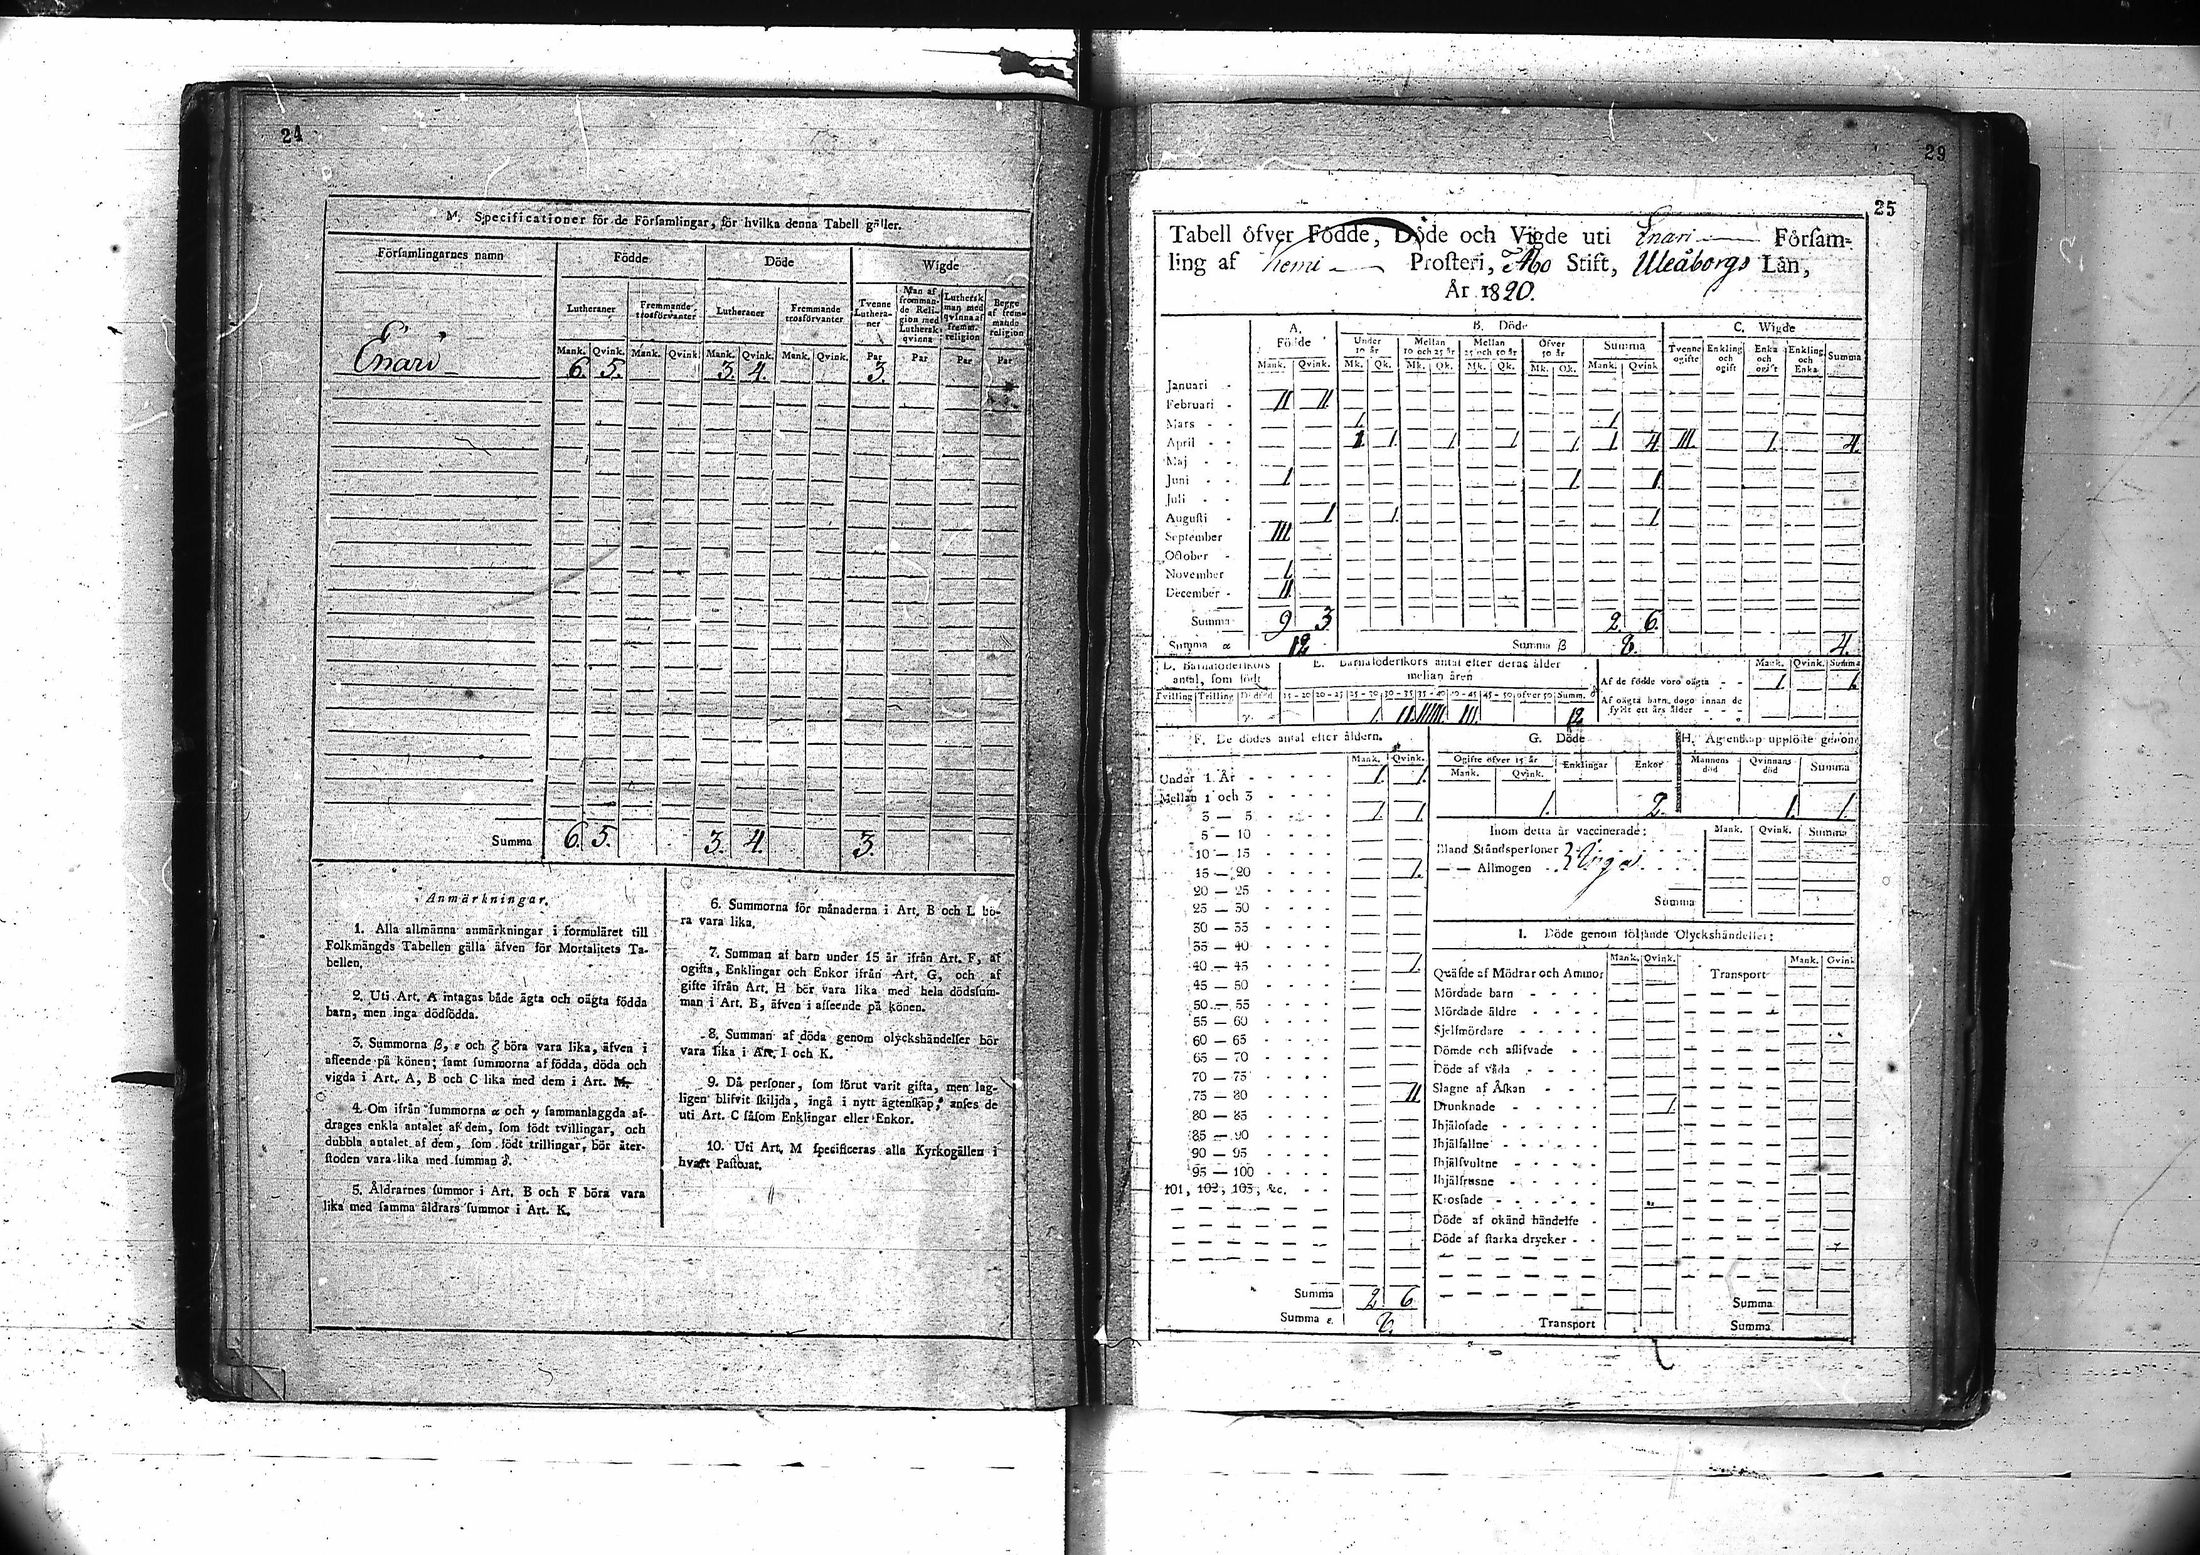 24
M. Specificationer för de Förſamlingar, för hvilka denna Tabell gäller.
Förſamlingarnes namn Födde Döde Wigde
Lutheraner Fremmande trosförvanter Lutheraner Fremmande trosförvanter Tvenne Lutheraner Man af frommande Religion med Luthersk qvinna Luthersk man med qvinna af fremm. religion Begge af fremmande religion
Mank. Qvink. Mank. Qvink. Mank. Qvink. Mank. Qvink. Par Par Par Par
Enari 6. 5. 3. 4. 3.
Summa 6. 5. 3. 4. 3.
Anmärkningar.
1. Alla allmänna anmärkningar i formuläret till
Folkmängds Tabellen gälla äfven för Mortalitets Ta-
bellen.
2. Uti Art. A intagas både ägta och oägta födda
barn, men inga dödfödda.
3. Summorna β, ε och ζ böra vara lika, äfven i
afſeende på könen; ſamt ſummorna af födda, döda och
vigda i Art. A, B och C lika med dem i Art. M.
4. Om ifrån ſummorna α och γ ſammanlaggda af-
drages enkla antalet af dem, ſom födt tvillingar, och
dubbla antalet af dem, ſom födt trillingar, bör åter-
ſtoden vara lika med ſumman δ.
5. Åldrarnes ſummor i Art. B och F böra vara
lika med ſamma åldrars ſummor i Art. K.
6. Summorna för månaderna i Art. B och L bö-
ra vara lika.
7. Summan af barn under 15 år ifrån Art. F, af
ogifta, Enklingar och Enkor ifrån Art. G, och af
gifte ifrån Art. H bör vara lika med hela dödsſum-
man i Art. B, äfven i afſeende på könen.
8. Summan af döda genom olyckshändelſer bör
vara lika i Art. I och K.
9. Då perſoner, ſom förut varit gifta, men lag-
ligen blifvit ſkiljda, ingå i nytt ägtenſkap, anſes de
uti Art. C ſåſom Enklingar eller Enkor.
10. Uti Art. M ſpecificeras alla Kyrkogällen i
hvart Paſtorat.
29
25
Tabell öfver Födde, Döde och Vigde uti Enari Förſam-
ling af Kemi Proſteri, Åbo Stift, Uleåborgs Län,
År 1820.
A. Födde B. Döde C. Wigde
Under 10 år Mellan 10 och 25 år Mellan 25 och 50 år Öfver 50 år Summa Tvenne ogifte Enkling och ogift Enka och ogift Enkling och Enka Summa
Mank. Qvink. Mk. Qk. Mk. Qk. Mk. Qk. Mk. Qk. Mank. Qvink
Januari
Februari II II
Mars 1. 1
April 1 1 1 1 1 1 4 III. 1. 4.
Maj
Juni 1 1 1
Juli
Auguſti 1 1. 1
September III.
October
November 1
December II
Summa 9 3 2. 6.
Summa α 12 Summa β 8. 4.
D. Barnaföderſkors antal, ſom födt E. Barnaföderſkors antal efter deras ålder mellan åren Mank. Qvink. Summa
Tvilling Trilling Dödfödd 15-20 20-25 25-30 30-35 35-40 40-45 45-50 öfver 50 Summ. δ Af de födde voro oägta 1 1.
Af oägta barn dogo innan de
fyllt ett års ålder
1. II IIIIII III. 12
F. De dödes antal efter åldern. G. Döde H. Ägtenſkap upplöſte genom
Mank. Qvink. Ogifte öfver 15 år Enklingar Enkor Mannens död Qvinnans död Summa
Mank. Qvink.
Under 1. År 1. 1.
Mellan 1 och 3 1 1 1. 2. 1. 1.
3 — 5
5 — 10
10 — 15
15 — 20 1.
20 — 25
25 — 30
30 — 35
35 — 40
40 — 45 1
45 — 50
50 — 55
55 — 60
60 — 65
65 — 70
70 — 75
75 — 80 II
80 — 85
85 — 90
90 — 95
95 — 100
101, 102, 103, &c.
Summa 2 6
Summa ε. 8.
Inom detta år vaccinerade: Mank. Qvink. Summa
Bland Ståndsperſoner
— — Allmogen Inga.
Summa
I. Döde genom följande Olyckshändelſer:
Mank. Qvink. Mank. Qvink
Quäfde af Mödrar och Ammor Transport
Mördade barn
Mördade äldre
Sjelfmördare
Dömde och aflifvade
Döde af våda
Slagne af Åſkan
Drunknade 1.
Ihjälofade
Ihjälfallne
Ihjälſvultne
Ihjälfrusne
Kroſſade
Döde af okänd händelſe
Döde af ſtarka drycker
Summa
Transport Summa